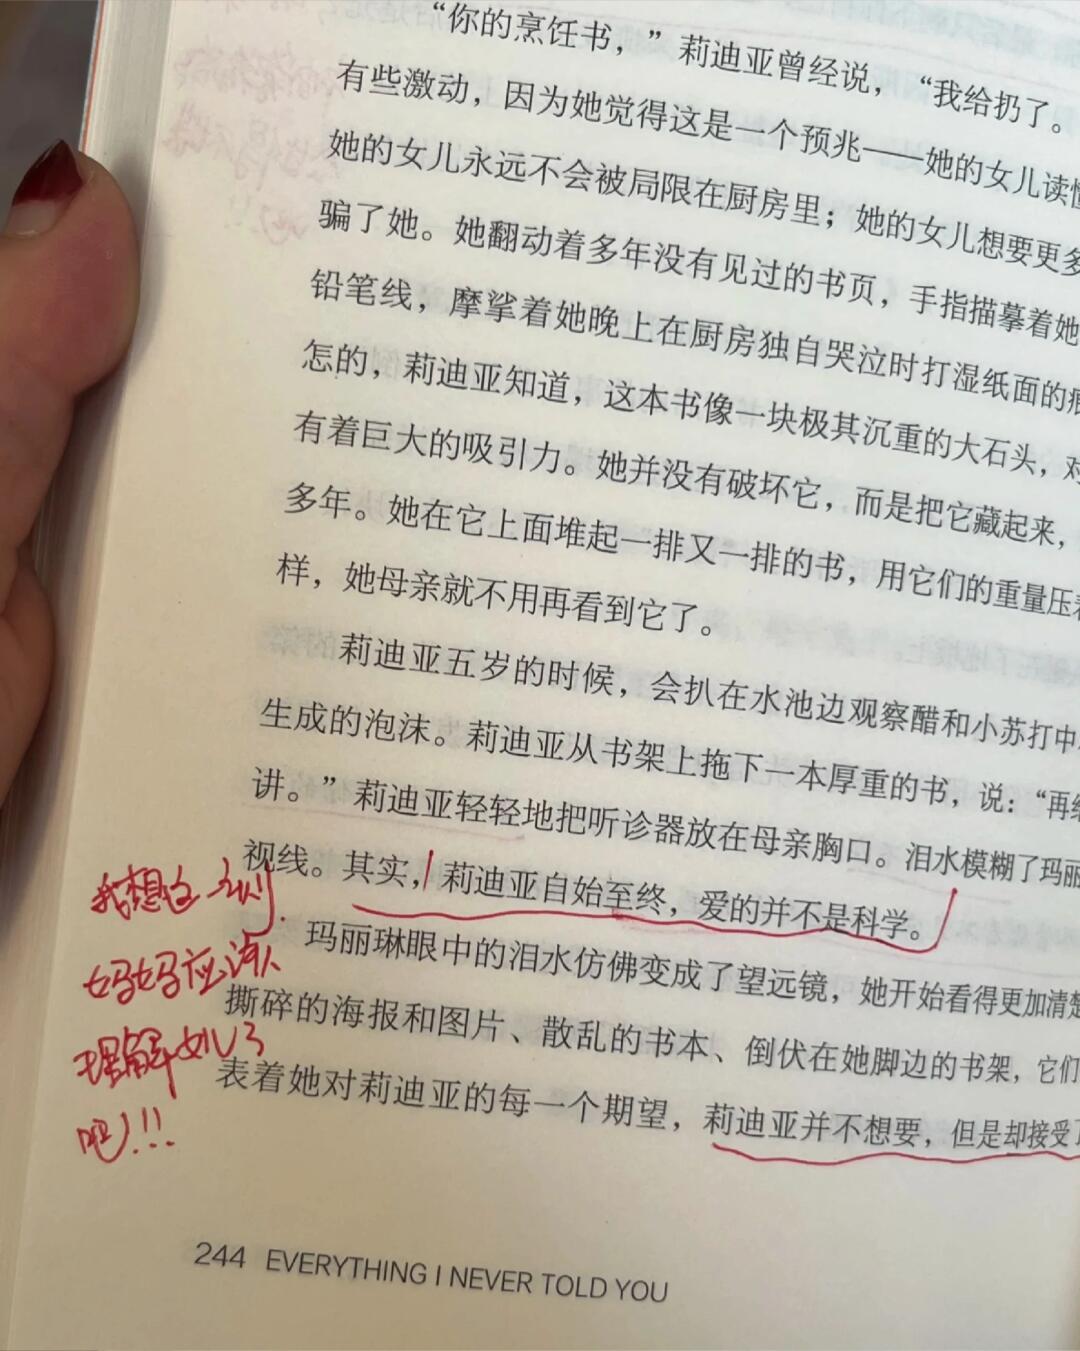 “你的烹饪书，”莉迪亚曾经说，“我给扔了。
有些激动，因为她觉得这是一个预兆——她的女儿读懂
她的女儿永远不会被局限在厨房里；她的女儿想要更多
骗了她。她翻动着多年没有见过的书页，手指描摹着她
铅笔线，摩挲着她晚上在厨房独自哭泣时打湿纸面的痕
怎的，莉迪亚知道，这本书像一块极其沉重的大石头，对
有着巨大的吸引力。她并没有破坏它，而是把它藏起来，
多年。她在它上面堆起一排又一排的书，用它们的重量压着
样，她母亲就不用再看到它了。
莉迪亚五岁的时候，会扒在水池边观察醋和小苏打中
生成的泡沫。莉迪亚从书架上拖下一本厚重的书，说：“再给
讲。”莉迪亚轻轻地把听诊器放在母亲胸口。泪水模糊了玛丽
视线。其实，莉迪亚自始至终，爱的并不是科学。
玛丽琳眼中的泪水仿佛变成了望远镜，她开始看得更加清楚
撕碎的海报和图片、散乱的书本、倒伏在她脚边的书架，它们
表着她对莉迪亚的每一个期望，莉迪亚并不想要，但是却接受了
我想这一刻
妈妈应该
理解女儿了
吧！！！
244 EVERYTHING I NEVER TOLD YOU